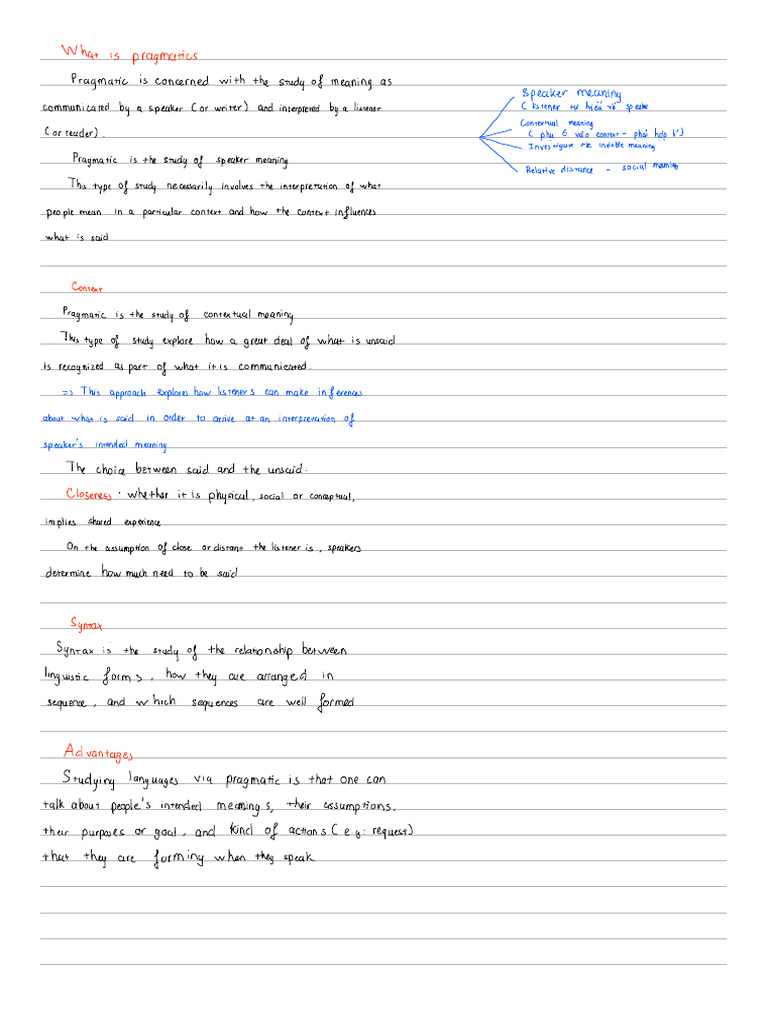 What is pragmatics
Pragmatic is concerned with the study of meaning as
communicated by a speaker (or writer) and interpreted by a listener
(or reader).
Pragmatic is the study of speaker meaning
This type of study necessarily involves the interpretation of what
people mean in a particular context and how the context influences
what is said
Speaker meaning
( listener tự hiểu về speaker
Contextual meaning
( phụ € vào context - phải hợp lí)
Investigate the invisible meaning
Relative distance - social meaning
Context
Pragmatic is the study of contextual meaning
This type of study explore how a great deal of what is unsaid
is recognized as part of what it is communicated.
=> This approach explores how listeners can make inferences
about what is said in order to arrive at an interpretation of
speaker's intended meaning
The choice between said and the unsaid.
Closeness : whether it is physical, social or conceptual,
implies shared experience
On the assumption of close or distant the listener is, speakers
determine how much need to be said
Syntax
Syntax is the study of the relationship between
linguistic forms, how they are arranged in
sequence, and which sequences are well formed
Advantages
Studying languages via pragmatic is that one can
talk about people's intended meanings, their assumptions,
their purposes or goal, and kind of actions (eg: request)
that they are forming when they speak